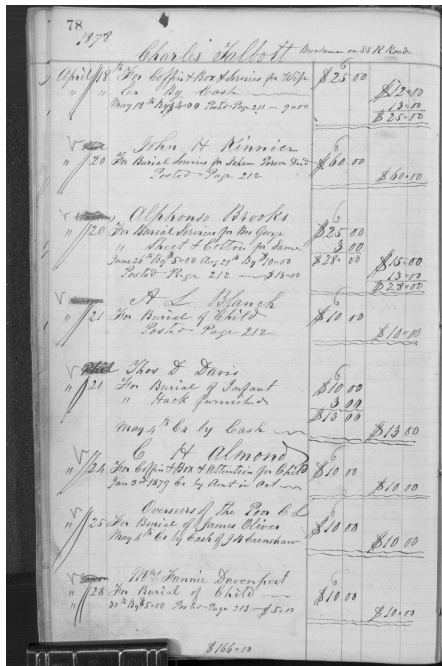 78
1878
Charles Talbott Brakeman on SS R Road
April 18th For Coffin & Box & Services for Wife $25 00
Cr By Cash $12 00
May 18th By $4 00 Posted Page 211 9 00 13 00
$25 00
John H Kinnier
" 20 For Burial Services for Person $60 00
Posted Page 212 $60 00
Alphonso Brooks
" 20 For Burial Services for Son George $25 00
" Sheet & Cotton for Same 3 00
June 25th By $5 00 Aug 29th By $10 00 $28 00 $15 00
Posted Page 212 $13 00 13 00
$28 00
A L Blanck
" 21 For Burial of Child $10 00
Posted Page 212 $10 00
Thos D Davis
" 21 For Burial of Infant $10 00
" Hack furnished 3 00
$13 00
May 4th Cr by Cash $13 00
C H Almond
" 24 For Coffin & Box & Attention for Child $10 00
Jan 3rd 1879 Cr by Amt in Act $10 00
Overseers of the Poor C L
" 25 For Burial of James Oliver $10 00
May 4th Cr by Cash of Crenshaw $10 00
Mrs Fannie Davenport
" 28 For Burial of Child $10 00
30th By $5 00 Posted Page 213 $5 00 $10 00
$166 00